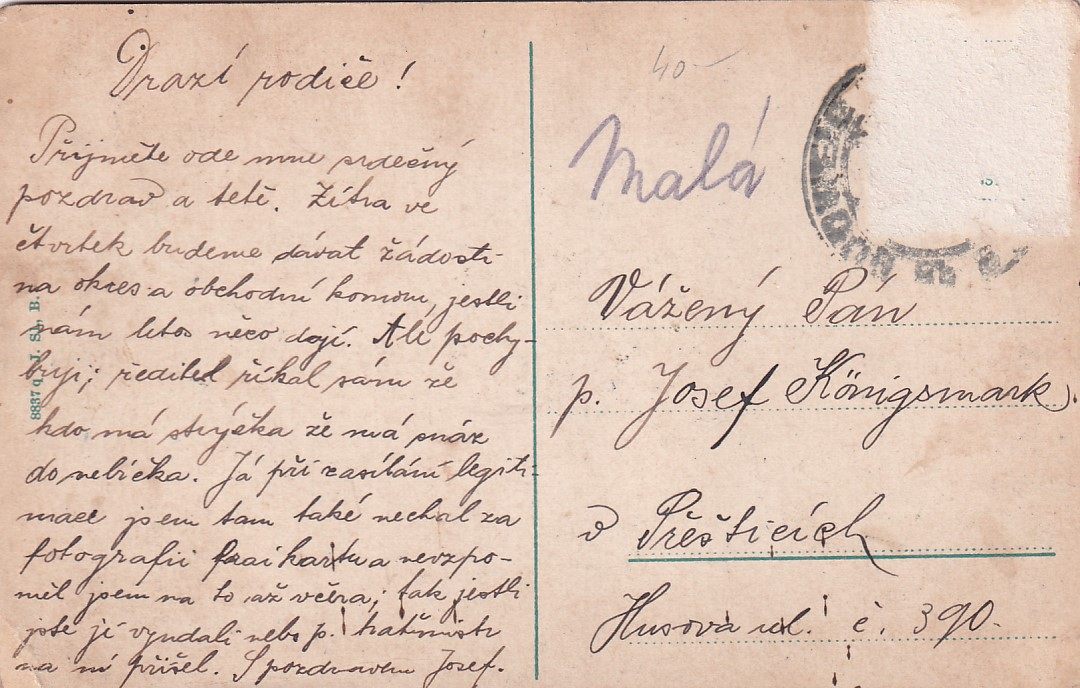 Drazí rodiče!
Přijměte ode mne srdečný
pozdrav a tetě. Zítra ve
čtvrtek budeme dávat žádosti
na okres a obchodní komoru, jestli
nám letos něco dají. Ale pochy-
buji; ředitel říkal sám že
kdo má strýčka že má snáz
do nebíčka. Já při zasílání legiti-
mace jsem tam také nechal za
fotografii a nevzpo-
měl jsem na to až včera; tak jestli
jste ji vyndali nebo p.
na ni přišel. S pozdravem Josef.
8837 q. J. St., B.
40
Malá
Vážený Pán
p. Josef Königsmark
v Přešticích
Husova ul. č. 390.